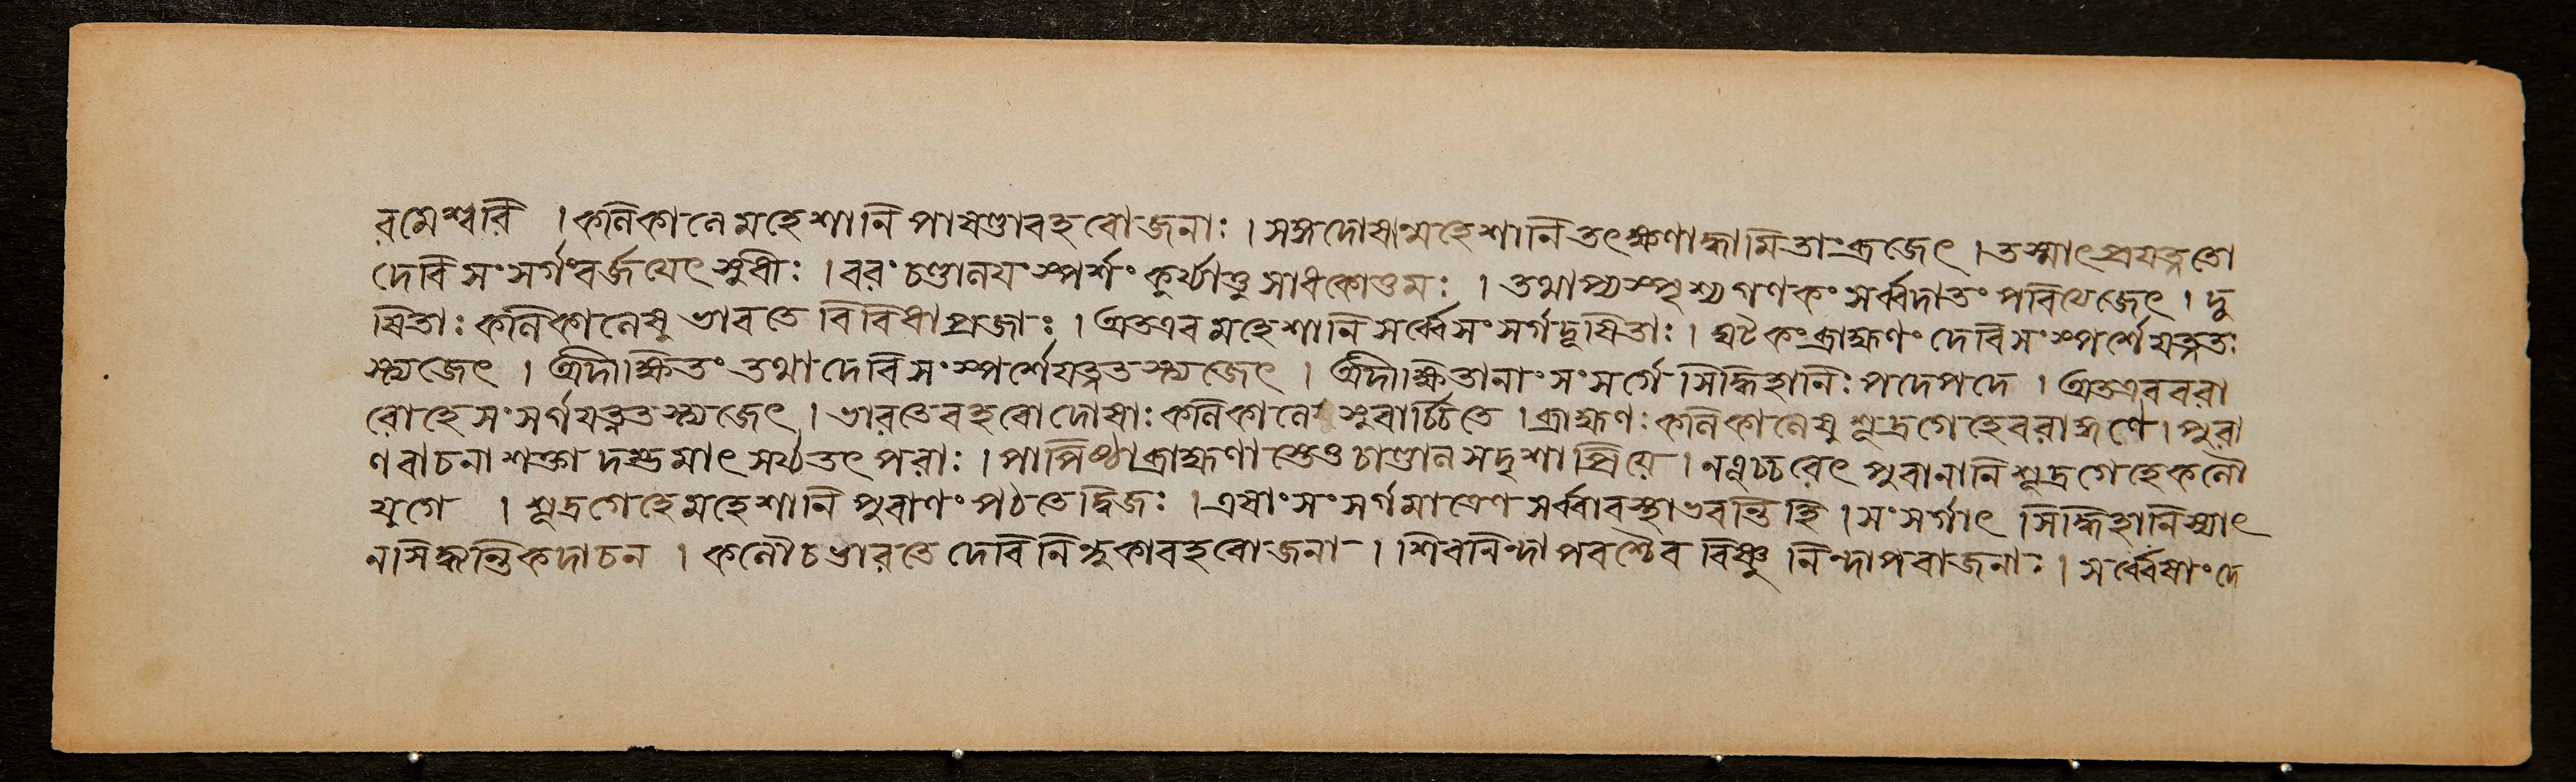 রমেশ্বরি । কলিকালে মহেশানি পাষণ্ডাবহবোজনাঃ । সঙ্গদোষান্মহেশানি তৎক্ষণাদ্ধামিতাংব্রজেৎ । তস্মাৎপ্রযত্নতো
দেবি সংসর্গংবর্জয়েৎ সুধীঃ । বরং চণ্ডালয়ংস্পর্শং কুর্য্যাত্তু সাধকোত্তমঃ । তথাপ্যস্পৃশ্যগণকং সর্ব্বদাতং পরিথেজেৎ । দু
ষিতাঃ কলিকালেষু ভারতে বিবিধাপ্রজাঃ । অতএব মহেশানি সর্ব্বে সংসর্গদূষিতাঃ । ঘটকংব্রাহ্মণং দেবি সংস্পর্শে যত্নত
স্ত্যজেৎ । অদীক্ষিতং তথাদেবি সংস্পর্শেযত্নতস্ত্যজেৎ । অদীক্ষিতানাং সংসর্গে সিদ্ধিহানিঃ পদেপদে । অতএববরা
রোহে সংসর্গযত্নতস্ত্যজেৎ । ভারতেবহবোদোষাঃ কলিকালে সুরার্চ্চিতে । ব্রাহ্মণঃ কলিকালেষু শূদ্রগেহেবরাঙ্গণে । পুরা
ণবাচনাশক্তা সর্ব্বতৎ পরাঃ । পাপিষ্ঠাব্রাহ্মণাস্তেও চাণ্ডালসদৃশাপ্রিয়ে । নপুচ্চরেৎ পুরানানি শূদ্রগেহেকলৌ
যুগে । শূদ্রগেহে মহেশানি পুরাণং পঠতেদ্বিজঃ । এষাং সংসর্গমাত্রেণ সর্ব্বাবস্থাভবন্তি হি । সংসর্গাৎ সিদ্ধিহানিস্যাৎ
নসিদ্ধন্তিকদাচন । কলৌচভারতে দেবি নিন্দুকাবহবোজনা । শিবনিন্দাপরশ্চৈব বিষ্ণু নিন্দাপরাজনাঃ । সর্ব্বেষাং দে